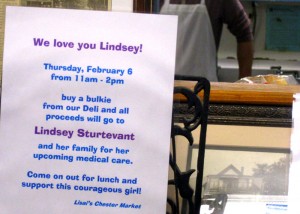 We love you Lindsey!
Thursday, February 6
from 11am - 2pm
buy a bulkie
from our Deli and all
proceeds will go to
Lindsey Sturtevant
and her family for her
upcoming medical care.
Come on out for lunch and
support this courageous girl!
Lisai's Chester Market